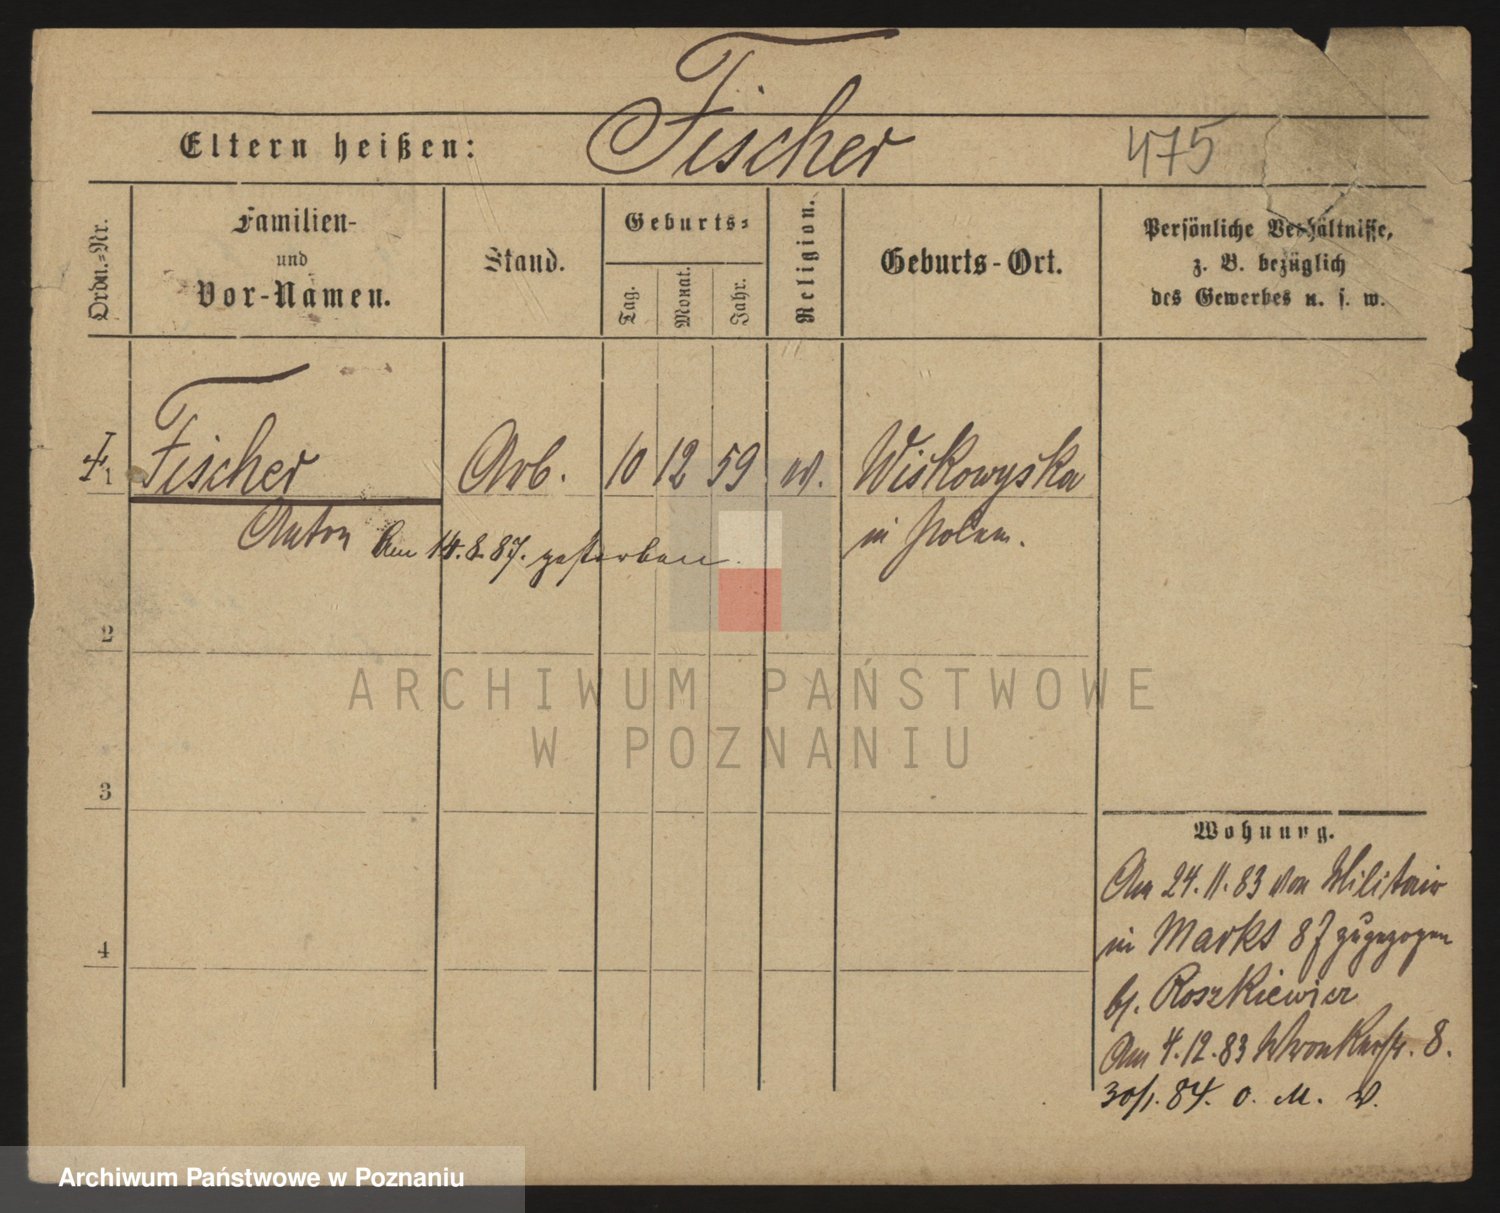 Fischer
Eltern heißen:
475
Ordn.-Nr.
Familien-
und
Vor-Namen.
Stand.
Geburts-
Tag.
Monat.
Jahr.
Religion.
Geburts-Ort.
Persönliche Verhältnisse,
z. B. bezüglich
des Gewerbes u. s. w.
1 Fischer Arb. 10 12 59 Wiskowyska
Anton Am 14.8.87. gestorben. in Polen.
2
3
4
ARCHIWUM PAŃSTWOWE
W POZNANIU
Wohnung.
Am 24.11.83 von Militair
in Markt 87 zugezogen
bj. Roszkiewicz
Am 4.12.83 Wronkerstr. 8.
30/1. 84. o. M. v.
Archiwum Państwowe w Poznaniu